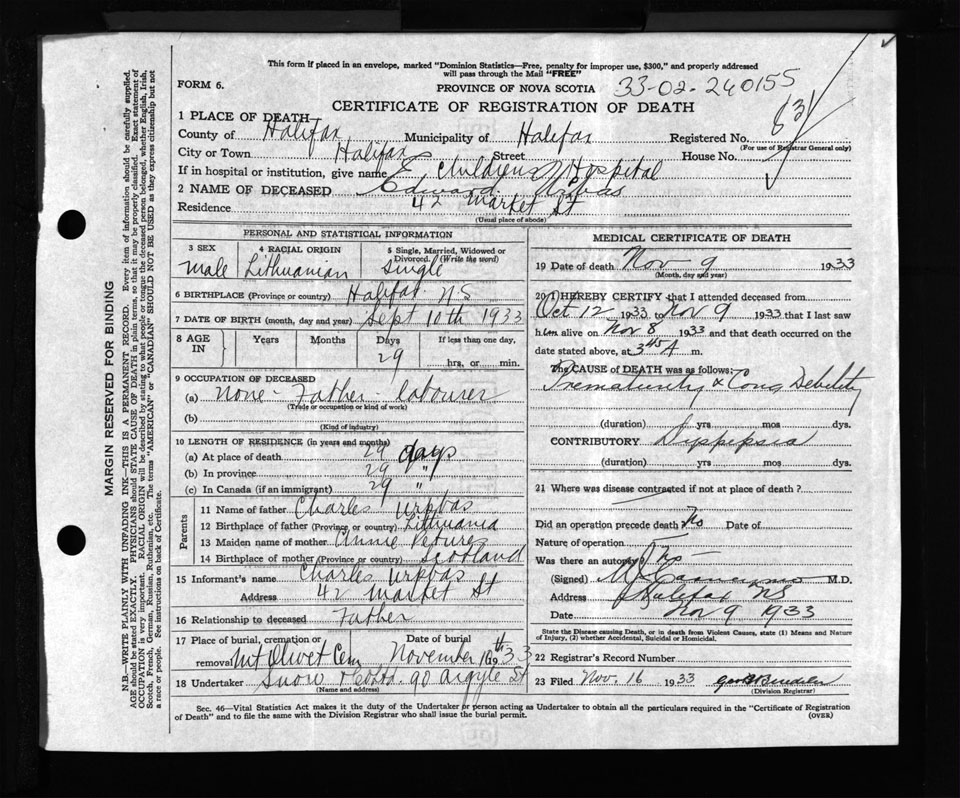 This form if placed in an envelope, marked "Dominion Statistics—Free, penalty for improper use, $300," and properly addressed
will pass through the Mail "FREE"
FORM 6.
PROVINCE OF NOVA SCOTIA 33-02-240155
CERTIFICATE OF REGISTRATION OF DEATH
1 PLACE OF DEATH
County of Halifax Municipality of Halifax Registered No. 831
(For use of Registrar General only)
City or Town Halifax Street House No.
If in hospital or institution, give name Childrens Hospital
2 NAME OF DECEASED Edward
Residence 42 Market St
(Usual place of abode)
PERSONAL AND STATISTICAL INFORMATION
3 SEX 4 RACIAL ORIGIN 5 Single, Married, Widowed or Divorced. (Write the word)
Male Lithuanian Single
6 BIRTHPLACE (Province or country) Halifax NS
7 DATE OF BIRTH (month, day and year) Sept 10th 1933
8 AGE IN Years Months Days If less than one day,
29 hrs. or min.
9 OCCUPATION OF DECEASED
(a) None - Father labourer
(Trade or occupation or kind of work)
(b)
(Kind of industry)
10 LENGTH OF RESIDENCE (in years and months)
(a) At place of death 29 days
(b) In province 29 "
(c) In Canada (if an immigrant) 29 "
Parents
11 Name of father Charles Urkbas
12 Birthplace of father (Province or country) Lithuania
13 Maiden name of mother Annie
14 Birthplace of mother (Province or country) Scotland
15 Informant's name Charles Urkbas
Address 42 Market St
16 Relationship to deceased Father
17 Place of burial, cremation or removal Mt Olivet Cem Date of burial November 10th 1933
18 Undertaker Snow & Co Ltd. 90 Argyle St
(Name and address)
MEDICAL CERTIFICATE OF DEATH
19 Date of death Nov 9 1933
(Month, day and year)
20 I HEREBY CERTIFY that I attended deceased from
Oct 12 1933 to Nov 9 1933 that I last saw
him alive on Nov 8 1933 and that death occurred on the
date stated above, at 3 45 A m.
The CAUSE of DEATH was as follows:
Prematurity & Cong Debility
(duration) yrs mos dys.
CONTRIBUTORY Dispepsia
(duration) yrs mos dys.
21 Where was disease contracted if not at place of death?
Did an operation precede death No Date of
Nature of operation
Was there an autopsy No
(Signed) M.D.
Address Halifax NS
Date Nov 9 1933
State the Disease causing Death, or in death from Violent Causes, state (1) Means and Nature
of Injury, (2) whether Accidental, Suicidal or Homicidal.
22 Registrar's Record Number
23 Filed Nov. 16 1933
(Division Registrar)
Sec. 46—Vital Statistics Act makes it the duty of the Undertaker or person acting as Undertaker to obtain all the particulars required in the "Certificate of Registration
of Death" and to file the same with the Division Registrar who shall issue the burial permit. (OVER)
MARGIN RESERVED FOR BINDING
N.B.—WRITE PLAINLY WITH UNFADING INK—THIS IS A PERMANENT RECORD. Every item of information should be carefully supplied.
AGE should be stated EXACTLY. PHYSICIANS should STATE CAUSE OF DEATH in plain terms, so that it may be properly classified. Exact statement of
OCCUPATION is very important. RACIAL ORIGIN will be described by stating to what people or tongue the deceased person belonged, whether English, Irish,
Scotch, French, German, Russian, Ruthenian, etc. The terms "AMERICAN" or "CANADIAN" SHOULD NOT BE USED as they express citizenship but not
a race or people. See instructions on back of Certificate.